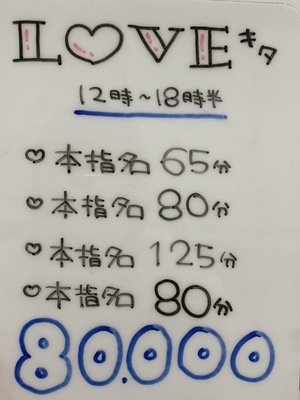 LOVEキタ
12時~18時半
♡本指名 65分
♡本指名 80分
♡本指名 125分
♡本指名 80分
80.000